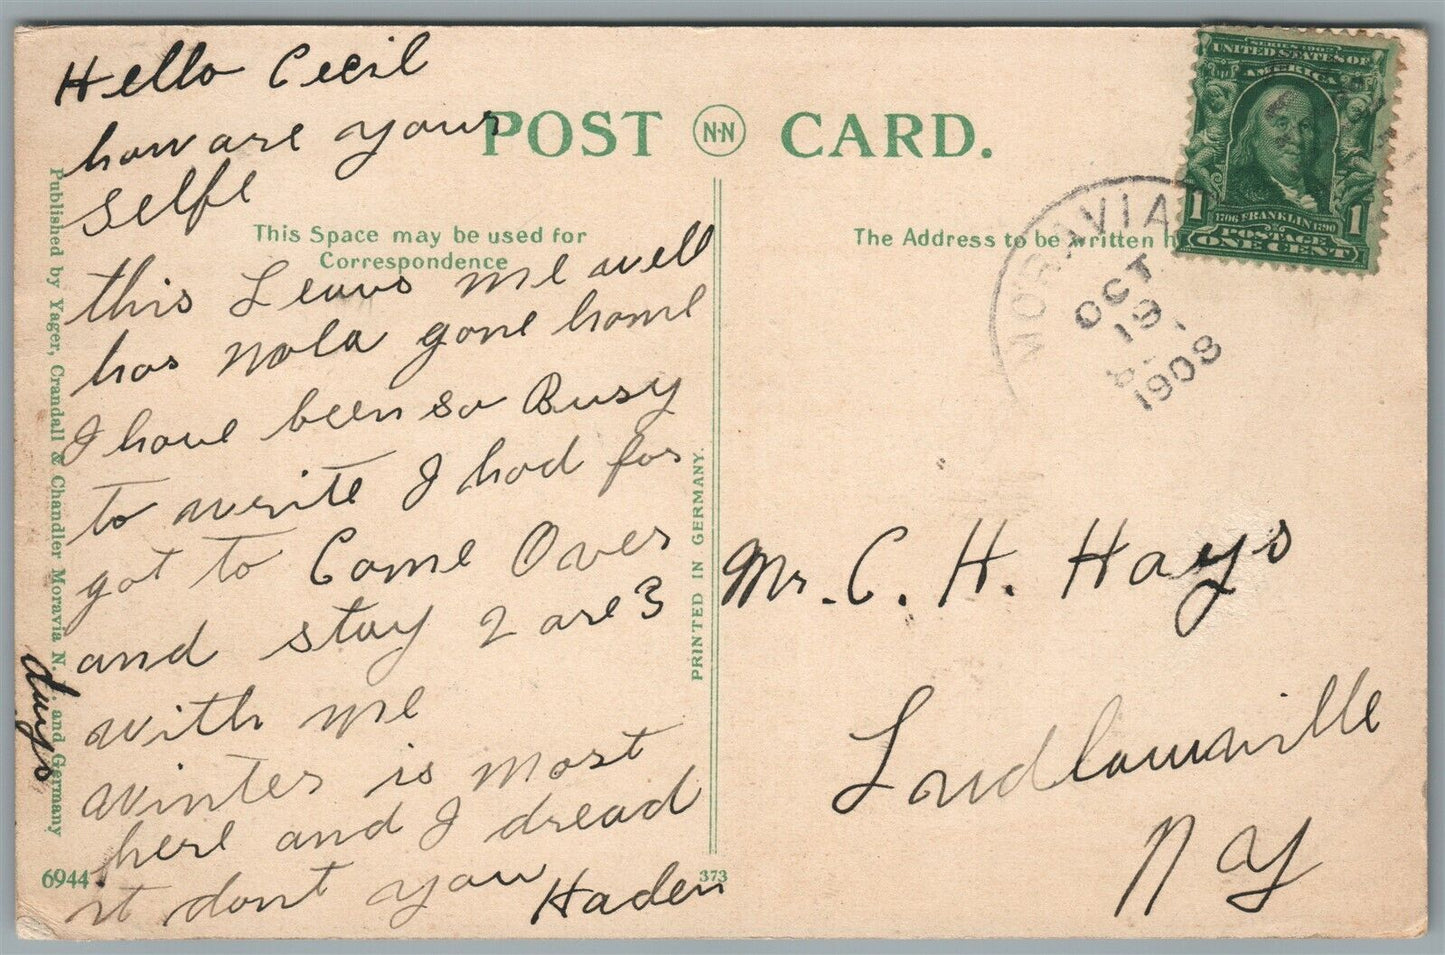 Hello Cecil
how are your
Selfe
this Leavs me well
has Nola gone home
I have been so Busy
to write I had for
got to Come Over
and stay 2 are 3
days
with me
winter is most
here and I dread
it dont you Haden
POST N·N CARD.
This Space may be used for
Correspondence
The Address to be written h
Published by Yager, Crandall & Chandler Moravia N. and Germany
PRINTED IN GERMANY.
6944
373
SERIES 1902
UNITED STATES OF
AMERICA
1 1
1706 FRANKLIN 1790
POSTAGE
ONE CENT
MORAVIA
OCT
19
1908
Mr. C. H. Hays
Ludlowville
N Y